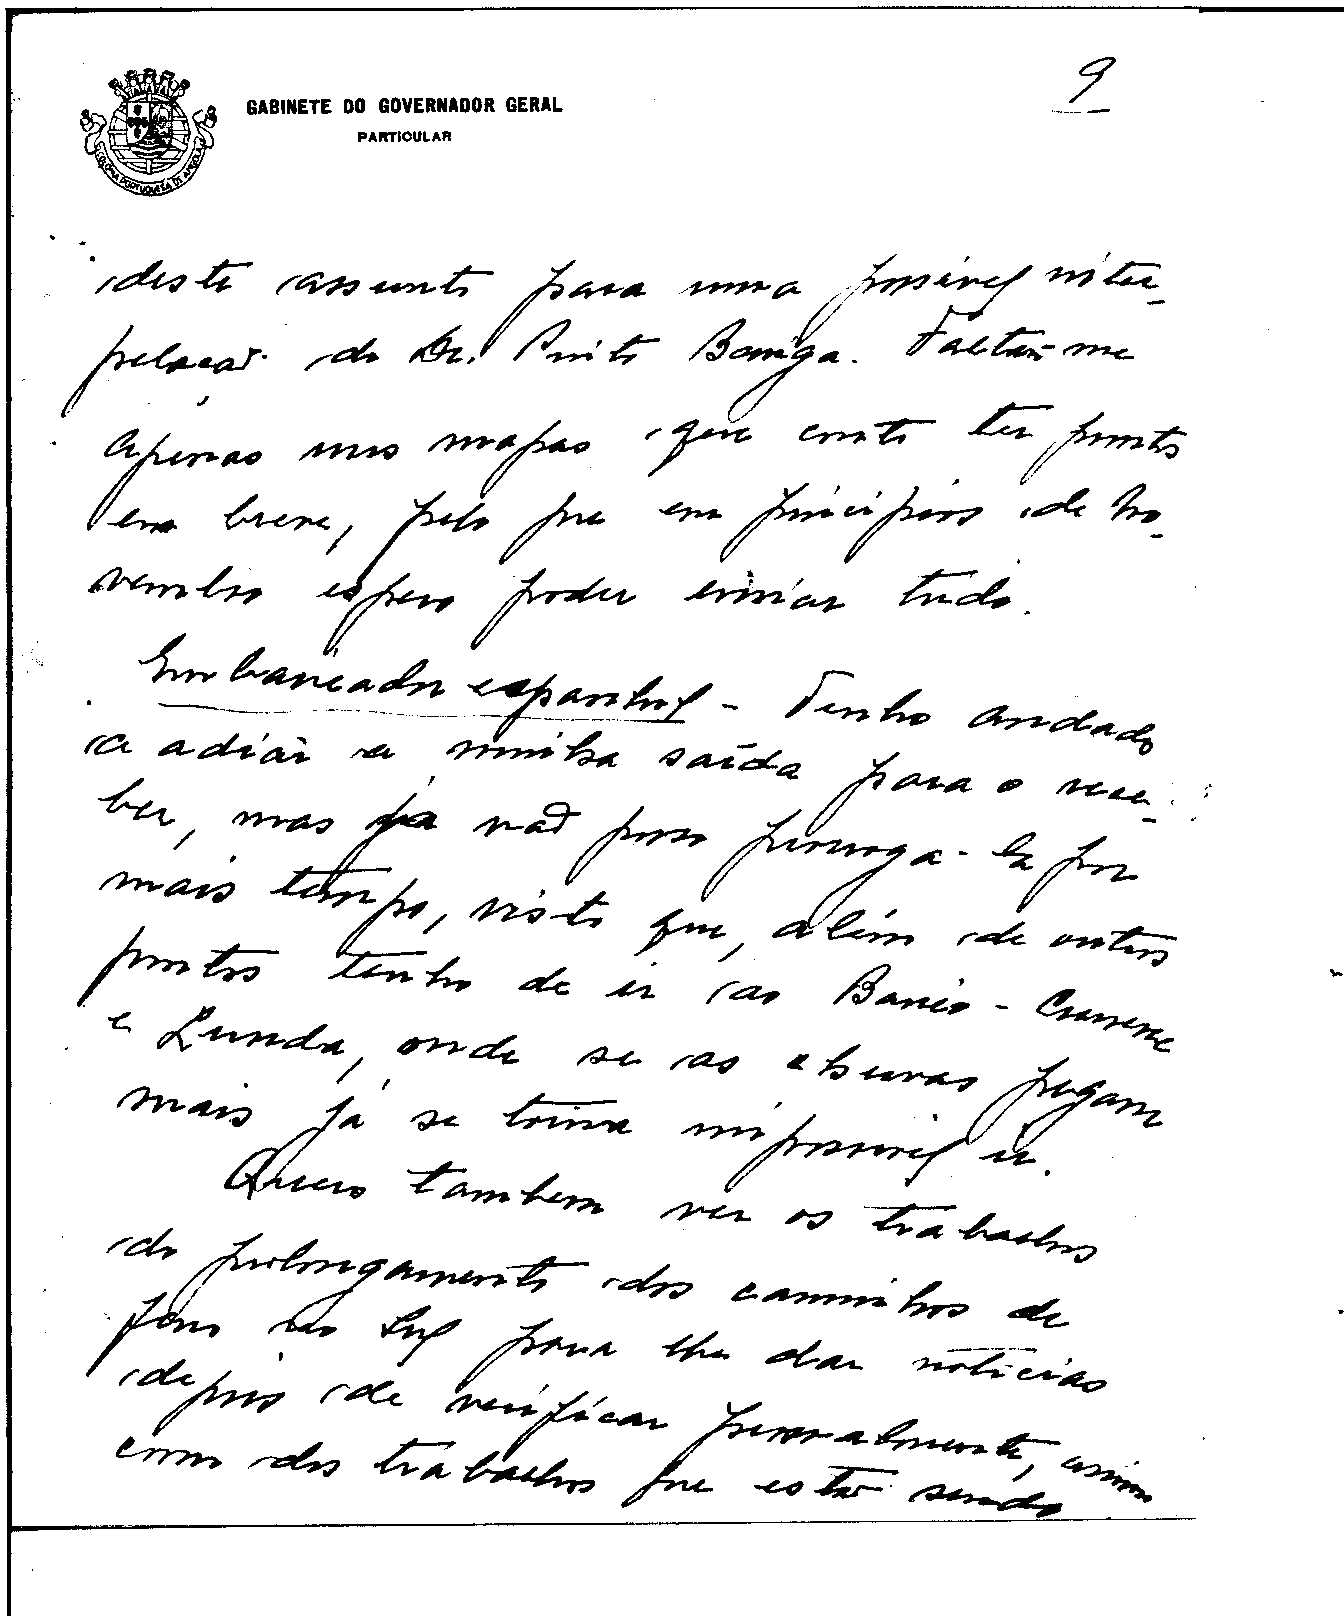 9
GABINETE DO GOVERNADOR GERAL
PARTICULAR
COLONIA PORTUGUESA DE ANGOLA
deste assunto para uma possivel inter-
pelação do Dr. Pinto Bariga. Faltam-me
apenas uns mapas que conto ter prontos
em breve, pelo que em principios de No-
vembro espero poder enviar tudo.
Embaixador espanhol - Tenho andado
a adiar a minha saída para o rece-
ber, mas já não posso prorroga-la por
mais tempo, visto que, além de outros
pontos tenho de ir ao Baixo-Cunene
e Lunda, onde se as chuvas pegam
mais já se torna impossivel ir.
Quero tambem ver os trabalhos
do prolongamento dos caminhos de
ferro do Sul para lhe dar noticias
depois de verificar pessoalmente, assim
como dos trabalhos que estão sendo